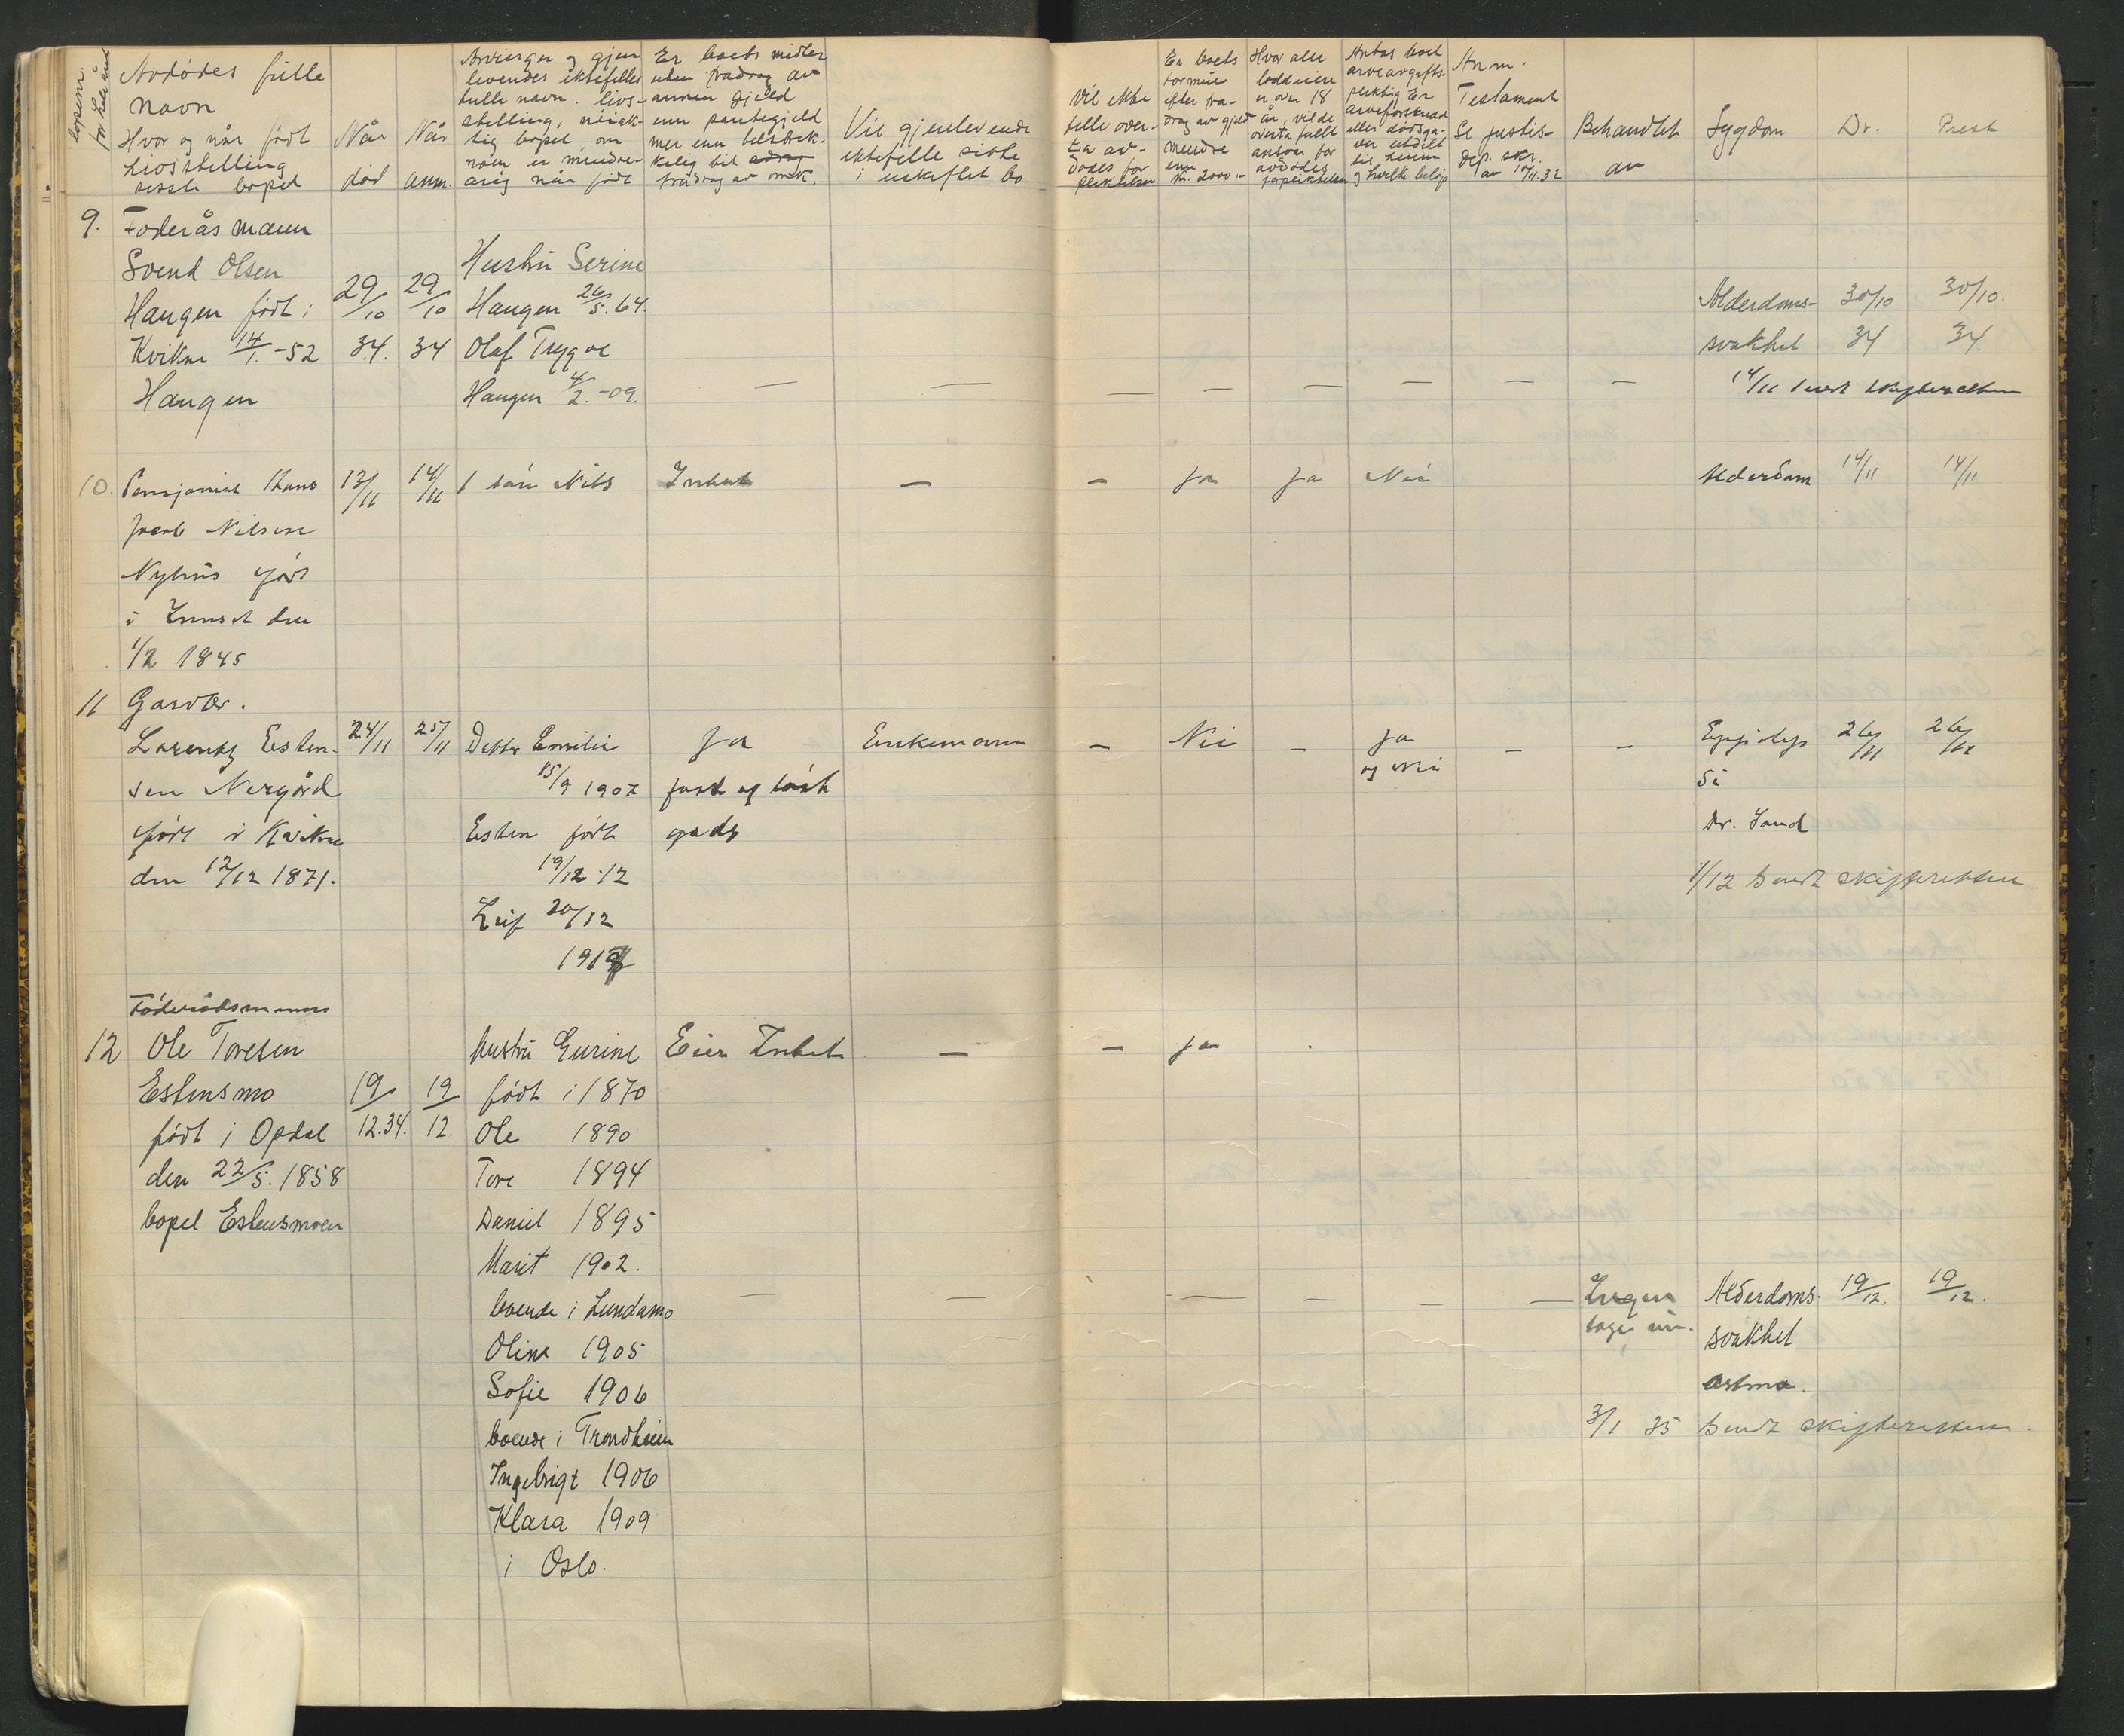 løpenr.
for hele året
Avdødes fulle
navn
Hvor og når født
Livsstilling
siste bopel
Når
død
Når
anm.
Arvinger og gjen
levendes ektefelles
fulle navn. livs-
stilling, nøiak-
tig bopel, om
noen er mindre-
årig når født
Er boets midler
uten fradrag av
annen gjeld
enn pantegjeld
mer enn tilstrek-
kelig til
fradrag av omk.
Vil gjenlevende
ektefelle sitte
i uskiftet bo
Vil ekte
felle over-
ta av-
dødes for
pliktelser
Er boets
formue
efter fra-
drag av gjeld
mindre
enn
kr. 2000.-
Hvor alle
loddeiere
er over 18
år, vil de
overta fullt
ansvar for
avdødes
forpliktelser
Antas boet
arveavgifts-
pliktig Er
arveforskudd
eller dødsga-
ver utdelt
til hvem
og hvilke beløp
Anm.
Testament
Se justis-
dep. skr.
av 10/11.32
Behandlet
av
Sygdom
Dr.
Prest
9. Foderåsmann
Svend Olsen
Haugen født i
Kvikne 14/1. -52
Haugen
29/10
34.
29/10
34
Hustru Serine
Haugen 26/5. 64.
Olaf Trygve
Haugen 4/2. -09.
— — — — — — — —
Alderdoms-
svakhet
30/10
34
30/10.
34.
14/11 sendt skifteretten
10. Pensjonist Hans
Nilsen
Nyhus født
i Innset den
1/2 1845
13/11
14/11
1 søn Nils
Intet
—
—
Ja
Ja
Nei
Alderdom
14/11
14/11
11 Garver.
Lorentz Esten-
sen Nergård
født i Kvikne
den 12/12 1871.
24/11
25/11
Datter Emilie
15/9 1907
Esten født
19/12 12
Leif 20/12
191
Ja
fast og løst
gods
Enkemann
—
Nei
—
Ja
og Nei
—
—
26/11
26/11
Dr. Sand
1/12 sendt skifteretten
Föderådsmann
12 Ole Toresen
Estensmo
født i Opdal
den 22/5. 1858
bopel Estensmoen
19/
12.34.
19/
12.
Hustru Gurine
født i 1870
Ole 1890
Tore 1894
Daniel 1895
Marit 1902.
boende i Lundamo
Oline 1905
Sofie 1906
boende i Trondheim
Ingebrigt 1906
Klara 1909
i Oslo.
Eier Intet
—
—
Ja
— — — — — —
Ingen
Alderdoms-
svakhet
astma.
19/12.
19/12.
3/1 35 sendt skifteretten.